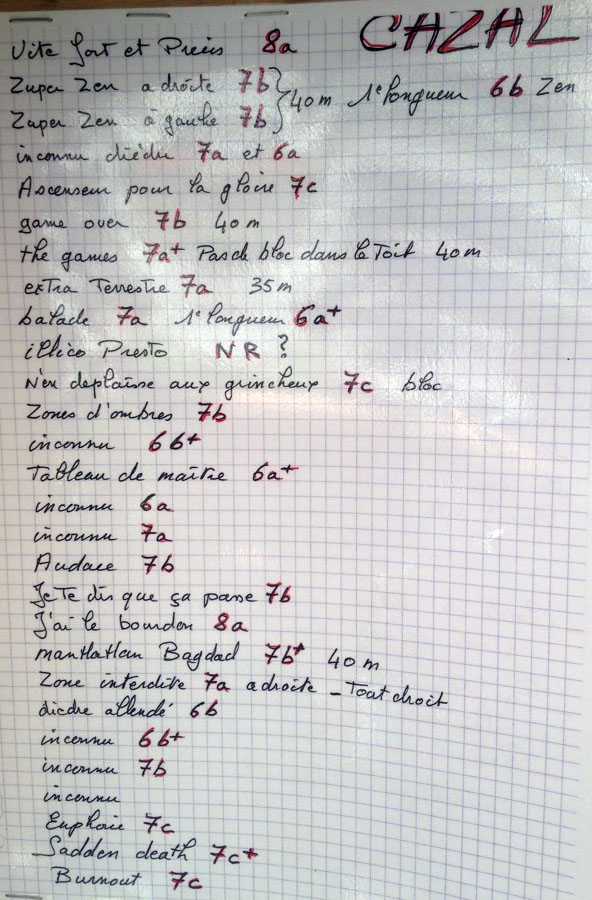 CAZAL
Vite fort et Précis 8a
Zuper Zen a droite 7b
Zuper Zen à gauche 7b
40m 1e longueur 6b Zen
inconnu dièdre 7a et 6a
Ascenseur pour la gloire 7c
game over 7b 40m
the games 7a+ Pas de bloc dans le Toit 40m
extra Terrestre 7a 35m
balade 7a 1e longueur 6a+
illico Presto NR ?
N'en deplaise aux grincheux 7c bloc
Zones d'ombres 7b
inconnu 6b+
Tableau de maître 6a+
inconnu 6a
inconnu 7a
Audace 7b
Je Te dis que ça passe 7b
J'ai le bourdon 8a
manhattan Bagdad 7b+ 40m
Zone interdite 7a a droite - Tout droit
diedre allendé 6b
inconnu 6b+
inconnu 7b
inconnu
Euphorie 7c
Sadden death 7c+
Burnout 7c